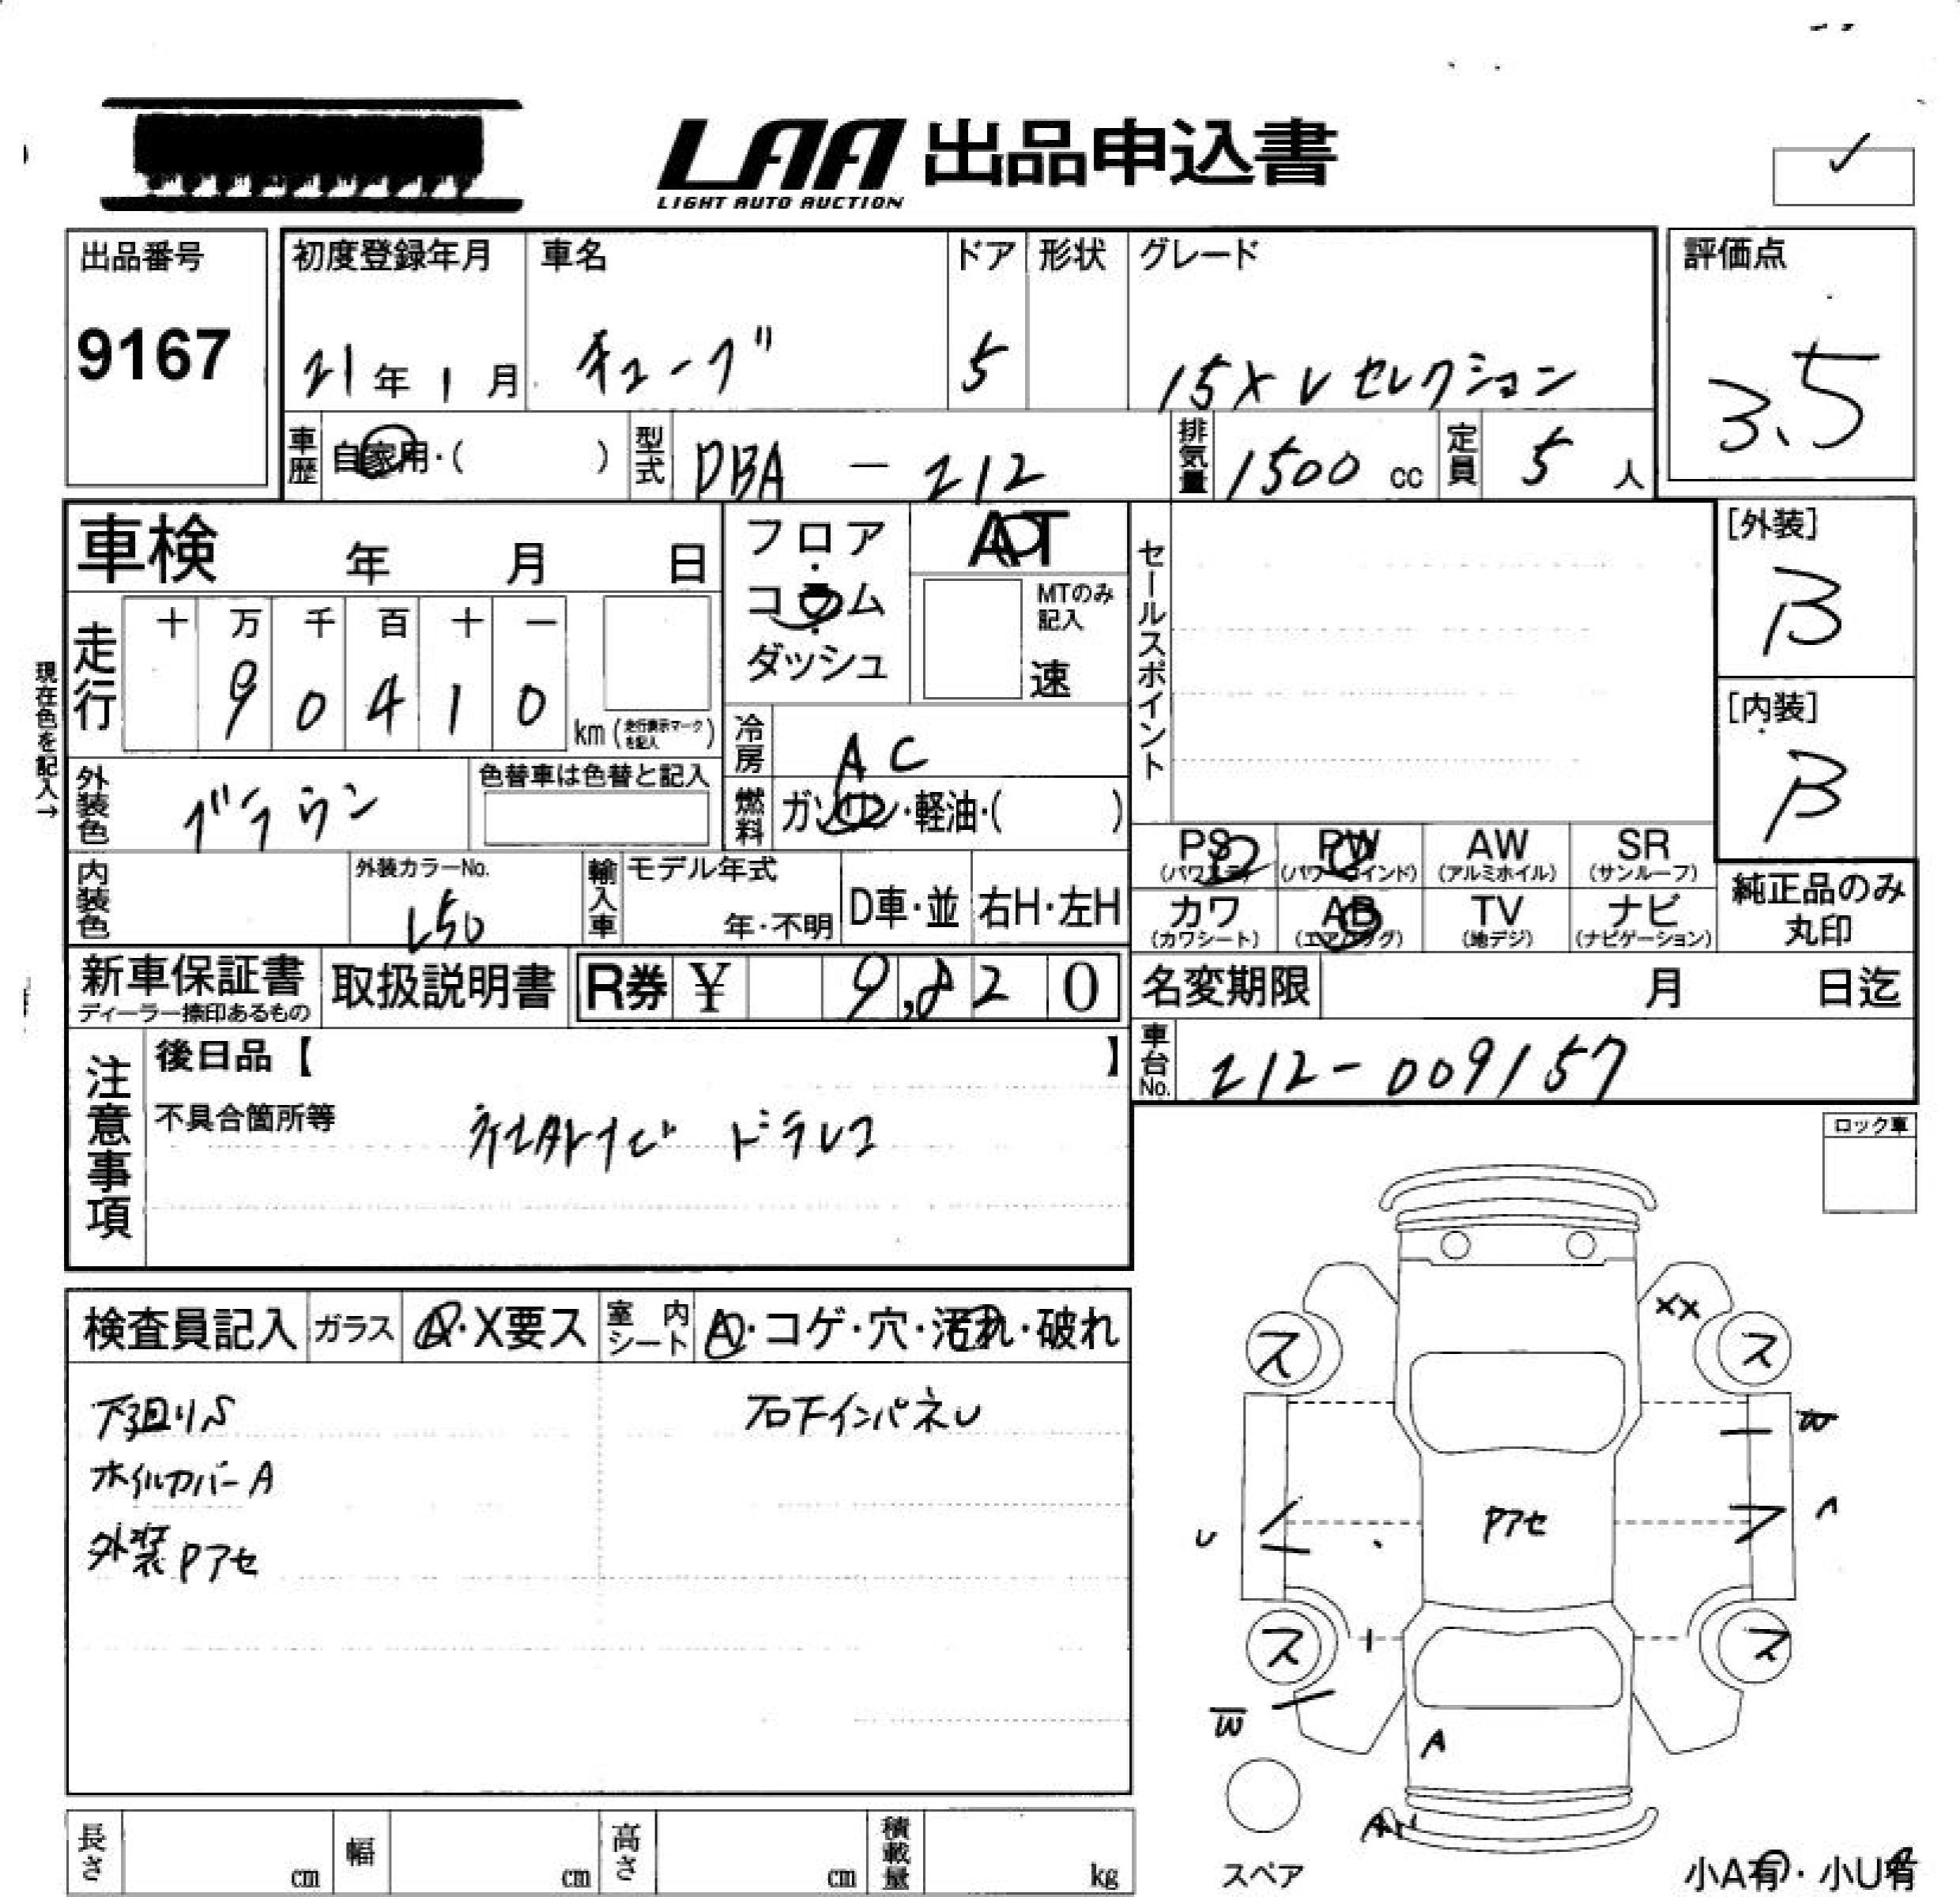 LAA 出品申込書
LIGHT AUTO AUCTION
✓
出品番号
9167
初度登録年月
21年1月
車名
キューブ
ドア
5
形状
グレード
15X Vセレクション
評価点
3.5
車歴
自家用・( )
型式
DBA - Z12
排気量
1500 cc
定員
5 人
車検 年 月 日
フロア・コラム・ダッシュ
AT
MTのみ記入
速
セールスポイント
[外装]
B
[内装]
B
現在色を記入→
走行
十 万 千 百 十 一
9 0 4 1 0
km (走行表示マークを記入)
冷房
AC
外装色
ブラウン
色替車は色替と記入
燃料
ガソリン・軽油・( )
内装色
外装カラーNo.
L50
輸入車
モデル年式
年・不明
D車・並
右H・左H
PS (パワステ)
PW (パワーウインド)
AW (アルミホイル)
SR (サンルーフ)
カワ (カワシート)
AB (エアバッグ)
TV (地デジ)
ナビ (ナビゲーション)
純正品のみ丸印
新車保証書
ディーラー捺印あるもの
取扱説明書
R券 ¥ 9,820
名変期限 月 日迄
車台No.
Z12-009157
注意事項
後日品【 】
不具合箇所等
社外ナビ ドラレコ
ロック車
検査員記入
ガラス
A・X要ス
室内シート
A・コゲ・穴・汚れ・破れ
下廻りS
右下インパネU
ホイルカバーA
外装Pアセ
XX
ス
ス
W
U
Pアセ
A
ス
ス
W
A
スペア
小A有・小U有
長さ cm
幅 cm
高さ cm
積載量 kg